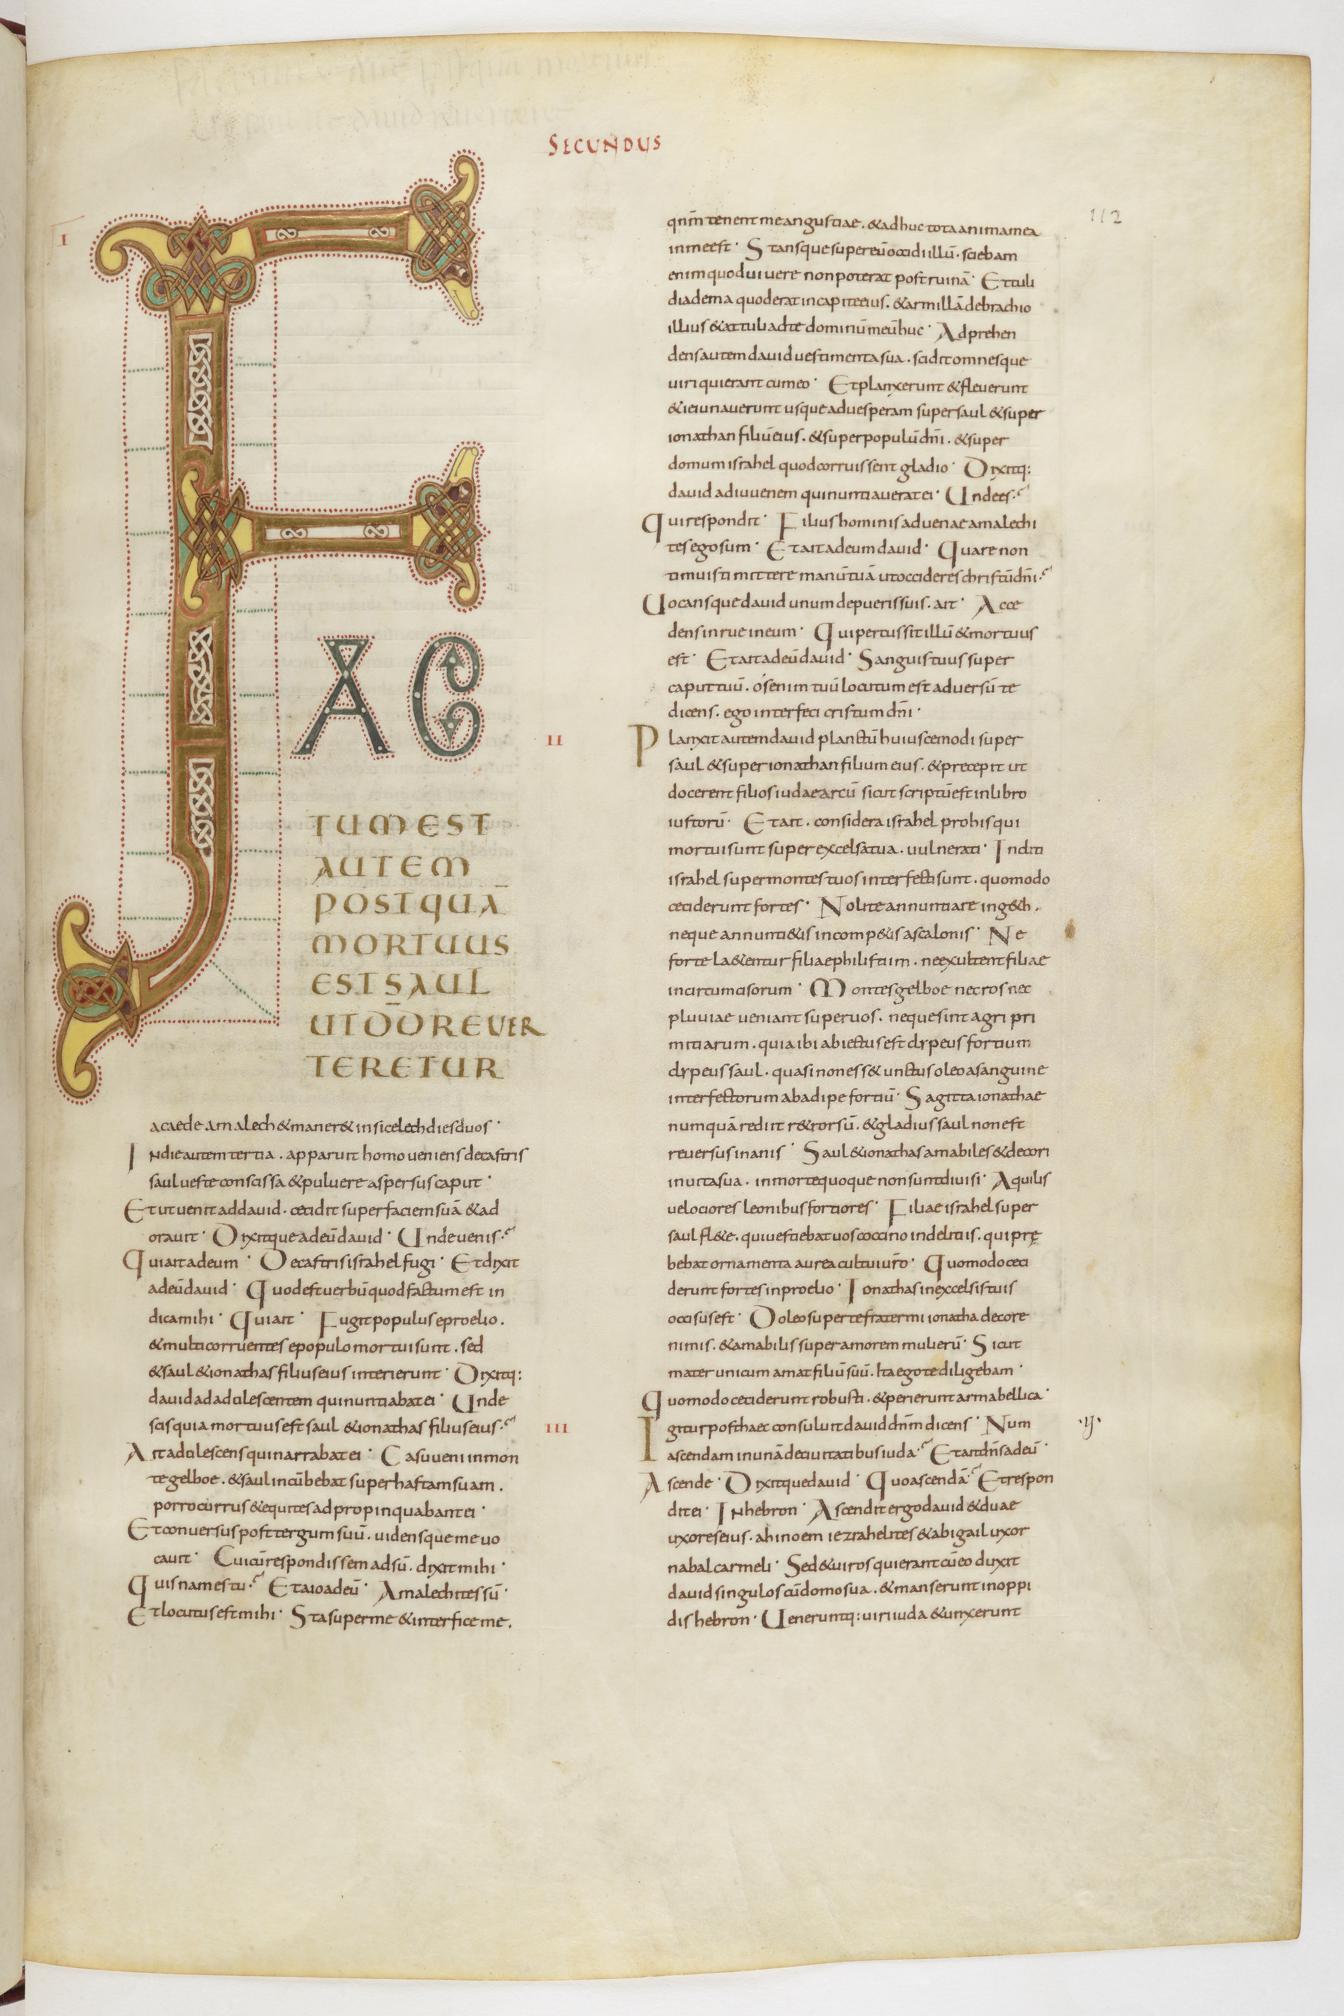 SECUNDUS
112
I
FAC
TUM EST
AUTEM
POSTQUĀ
MORTUUS
EST SAUL
UT DD̄ REVER
TERETUR
a caede amalech & maner& in sicelech dies duos·
In die autem tertia. apparuit homo veniens de castris
saul veste conscissa & pulvere aspersus caput·
Et ut venit ad david. cecidit super faciem suā & ad
oravit· Dixitque ad eū david· Unde venis·
Qui ait ad eum· De castris israhel fugi· Et dixit
ad eū david· Quod est verbū quod factum est in
dica mihi· Qui ait· Fugit populus e proelio.
& multi corruentes e populo mortui sunt. sed
& saul & ionathas filius eius interierunt· Dixitq:
david ad adulescentem qui nuntiabat ei· Unde
scis quia mortuus est saul & ionathas filius eius·
Ait adulescens qui narrabat ei· Casu veni in mon
te gelboe. & saul incūbebat super hastam suam.
porro currus & equites adpropinquabant ei·
Et conversus post tergum suū. vidensque me vo
cavit· Cui cū respondissem adsū. dixit mihi·
Quisnam es tu· Et aio ad eū· Amalechites sū·
Et locutus est mihi· Sta super me & interfice me.
qnm̄ tenent me angustiae. & adhuc tota anima mea
in me est· Stansque super eū occidi illū. sciebam
enim quod vivere non poterat post ruinā· Et tuli
diadema quod erat in capite eius. & armillā de brachio
illius & attuli ad te dominū meū huc· Adprehen
dens autem david vestimenta sua. scidit omnesque
viri qui erant cum eo· Et planxerunt & fleverunt
& ieiunaverunt usque ad vesperam super saul & super
ionathan filiū eius. & super populū dn̄i. & super
domum israhel quod corruissent gladio· Dixitq:
david ad iuvenem qui nuntiaverat ei· Unde es·
Qui respondit· Filius hominis advenae amalechi
tes ego sum· Et ait ad eum david· Quare non
timuisti mittere manū tuā ut occideres christū dn̄i·
Uocansque david unum de pueris suis. ait· Acce
dens inrue in eum· Qui percussit illū & mortuus
est· Et ait ad eū david· Sanguis tuus super
caput tuū. os enim tuū locutum est adversū te
dicens. ego interfeci cristum dn̄i·
II
Planxit autem david planctū huiuscemodi super
saul & super ionathan filium eius. & precepit ut
docerent filios iudae arcū sicut scriptū est in libro
iustorū· Et ait. considera israhel pro his qui
mortui sunt super excelsa tua. vulnerati· Incliti
israhel super montes tuos interfecti sunt. quomodo
ceciderunt fortes· Nolite annuntiare in g&h.
neque annunti&is in comp&is ascalonis· Ne
forte la&entur filiae philistium. ne exultent filiae
incircumcisorum· Montes gelboe nec ros nec
pluviae veniant super vos. neque sint agri pri
mitiarum. quia ibi abiectus est clypeus fortium
clypeus saul. quasi non ess& unctus oleo a sanguine
interfectorum ab adipe fortiū· Sagitta ionathae
numquā rediit r&rorsū. & gladius saul non est
reversus inanis· Saul & ionathas amabiles & decori
in vita sua. in morte quoque non sunt divisi· Aquilis
velociores leonibus fortiores· Filiae israhel super
saul fl&e. qui vestiebat vos coccino in deliciis. qui prę
bebat ornamenta aurea cultui vr̄o· Quomodo ceci
derunt fortes in proelio· Ionathas in excelsis tuis
occisus est· Doleo super te frater mi ionatha decore
nimis. & amabilis super amorem mulierū· Sicut
mater unicum amat filiū suū. Ita ego te diligebam·
Quomodo ceciderunt robusti. & perierunt arma bellica·
III
Igitur post haec consuluit david dn̄m dicens· Num
ascendam in unā de civitatibus iuda· Et ait dn̄s ad eū·
Ascende· Dixitque david· Quo ascendā· Et respon
dit ei· In hebron· Ascendit ergo david & duae
uxores eius. ahinoem iezrahelites & abigail uxor
nabal carmeli· Sed & viros qui erant cū eo duxit
david singulos cū domo sua. & manserunt in oppi
dis hebron· Veneruntq: viri iuda & unxerunt
·ij·